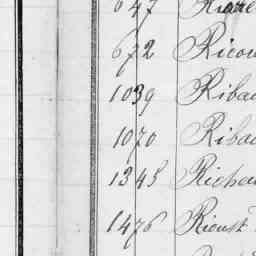 647
672 Ricou
1039 Ribau
1070 Ribau
1345 Richa
1476 Rioust